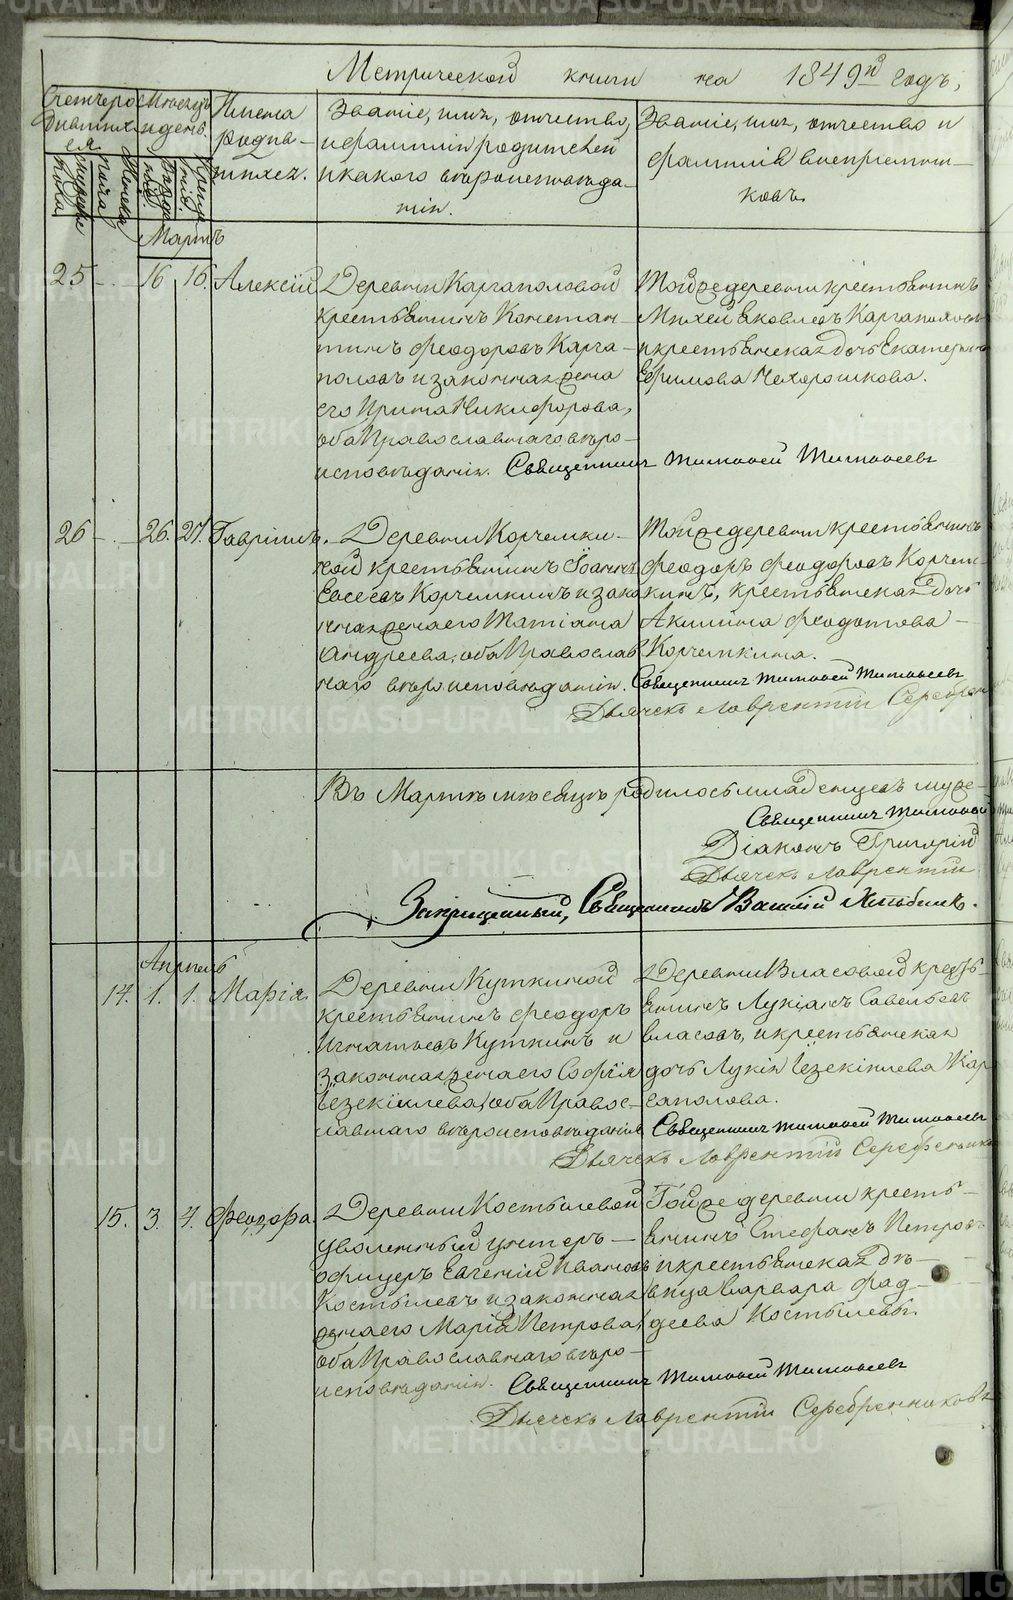 Метрической книги на 1849й годъ,
Счетъ родившихся
Мѣсяцъ и день.
Имена родившихся.
Званіе, имя, отчество, и фамилія родителей и какого вѣроисповѣданія.
Званіе, имя, отчество и фамилія воспріемниковъ.
Мужеска пола
Женска пола
рожденія
крещенія
Мартъ
25 - 16 16. Алексій
Деревни Каргаполовой
крестьянинъ Констан-
тинъ Феодоровъ Карга-
половъ и законная жена
его Ирина Никифорова,
оба Православнаго вѣро-
исповѣданія.
Тойже деревни крестьянинъ
Михей Яковлевъ Каргаполовъ
и крестьянская дочь Екатерина
Ефимова Нехорошкова.
Священникъ Тимофей Тимофеевъ
26 - 26. 27. Гавріилъ.
Деревни Корчемки-
ной крестьянинъ Іоаннъ
Евсеевъ Корчемкинъ и зако
нная жена его Татіана
Андреева, оба Православ
наго вѣроисповѣданія.
Тойже деревни крестьянинъ
Феодоръ Феодоровъ Корчем-
кинъ, крестьянская дочь
Акилина Феодотова
Корчемкина.
Священникъ Тимофей Тимофеевъ
Дьячекъ Лаврентій Серебрен
Въ Мартѣ мѣсяцѣ родилось младенцевъ муже-
Священникъ Тимофей
Діаконъ Григорій
Дьячекъ Лаврентій
Священникъ Василій
Апрѣль
14. 1. 1. Марія.
Деревни Куткиной
крестьянинъ Феодоръ
Игнатьевъ Куткинъ и
законная жена его Софія
Іезекіилева, оба Правос-
лавнаго вѣроисповѣданія
Деревни Власовой кресть-
янинъ Лукіанъ Савельевъ
Власовъ, и крестьянская
дочь Лукія Іезекіилева Кар
гаполова.
Священникъ Тимофей Тимофеевъ
Дьячекъ Лаврентій Серебренико
15. 3. 4. Феодора.
Деревни Костылевой
уволенный унтеръ-
офицеръ Евгеній Ивановъ
Костылевъ и законная
жена его Марія Петрова,
оба Православнаго вѣро-
исповѣданія.
Тойже деревни кресть-
янинъ Стефанъ Петровъ
и крестьянская дѣ-
вица Варвара Фад-
деева Костылевы.
Священникъ Тимофей Тимофеевъ
Дьячекъ Лаврентій Серебренниковъ
METRIKI.GASO-URAL.RU